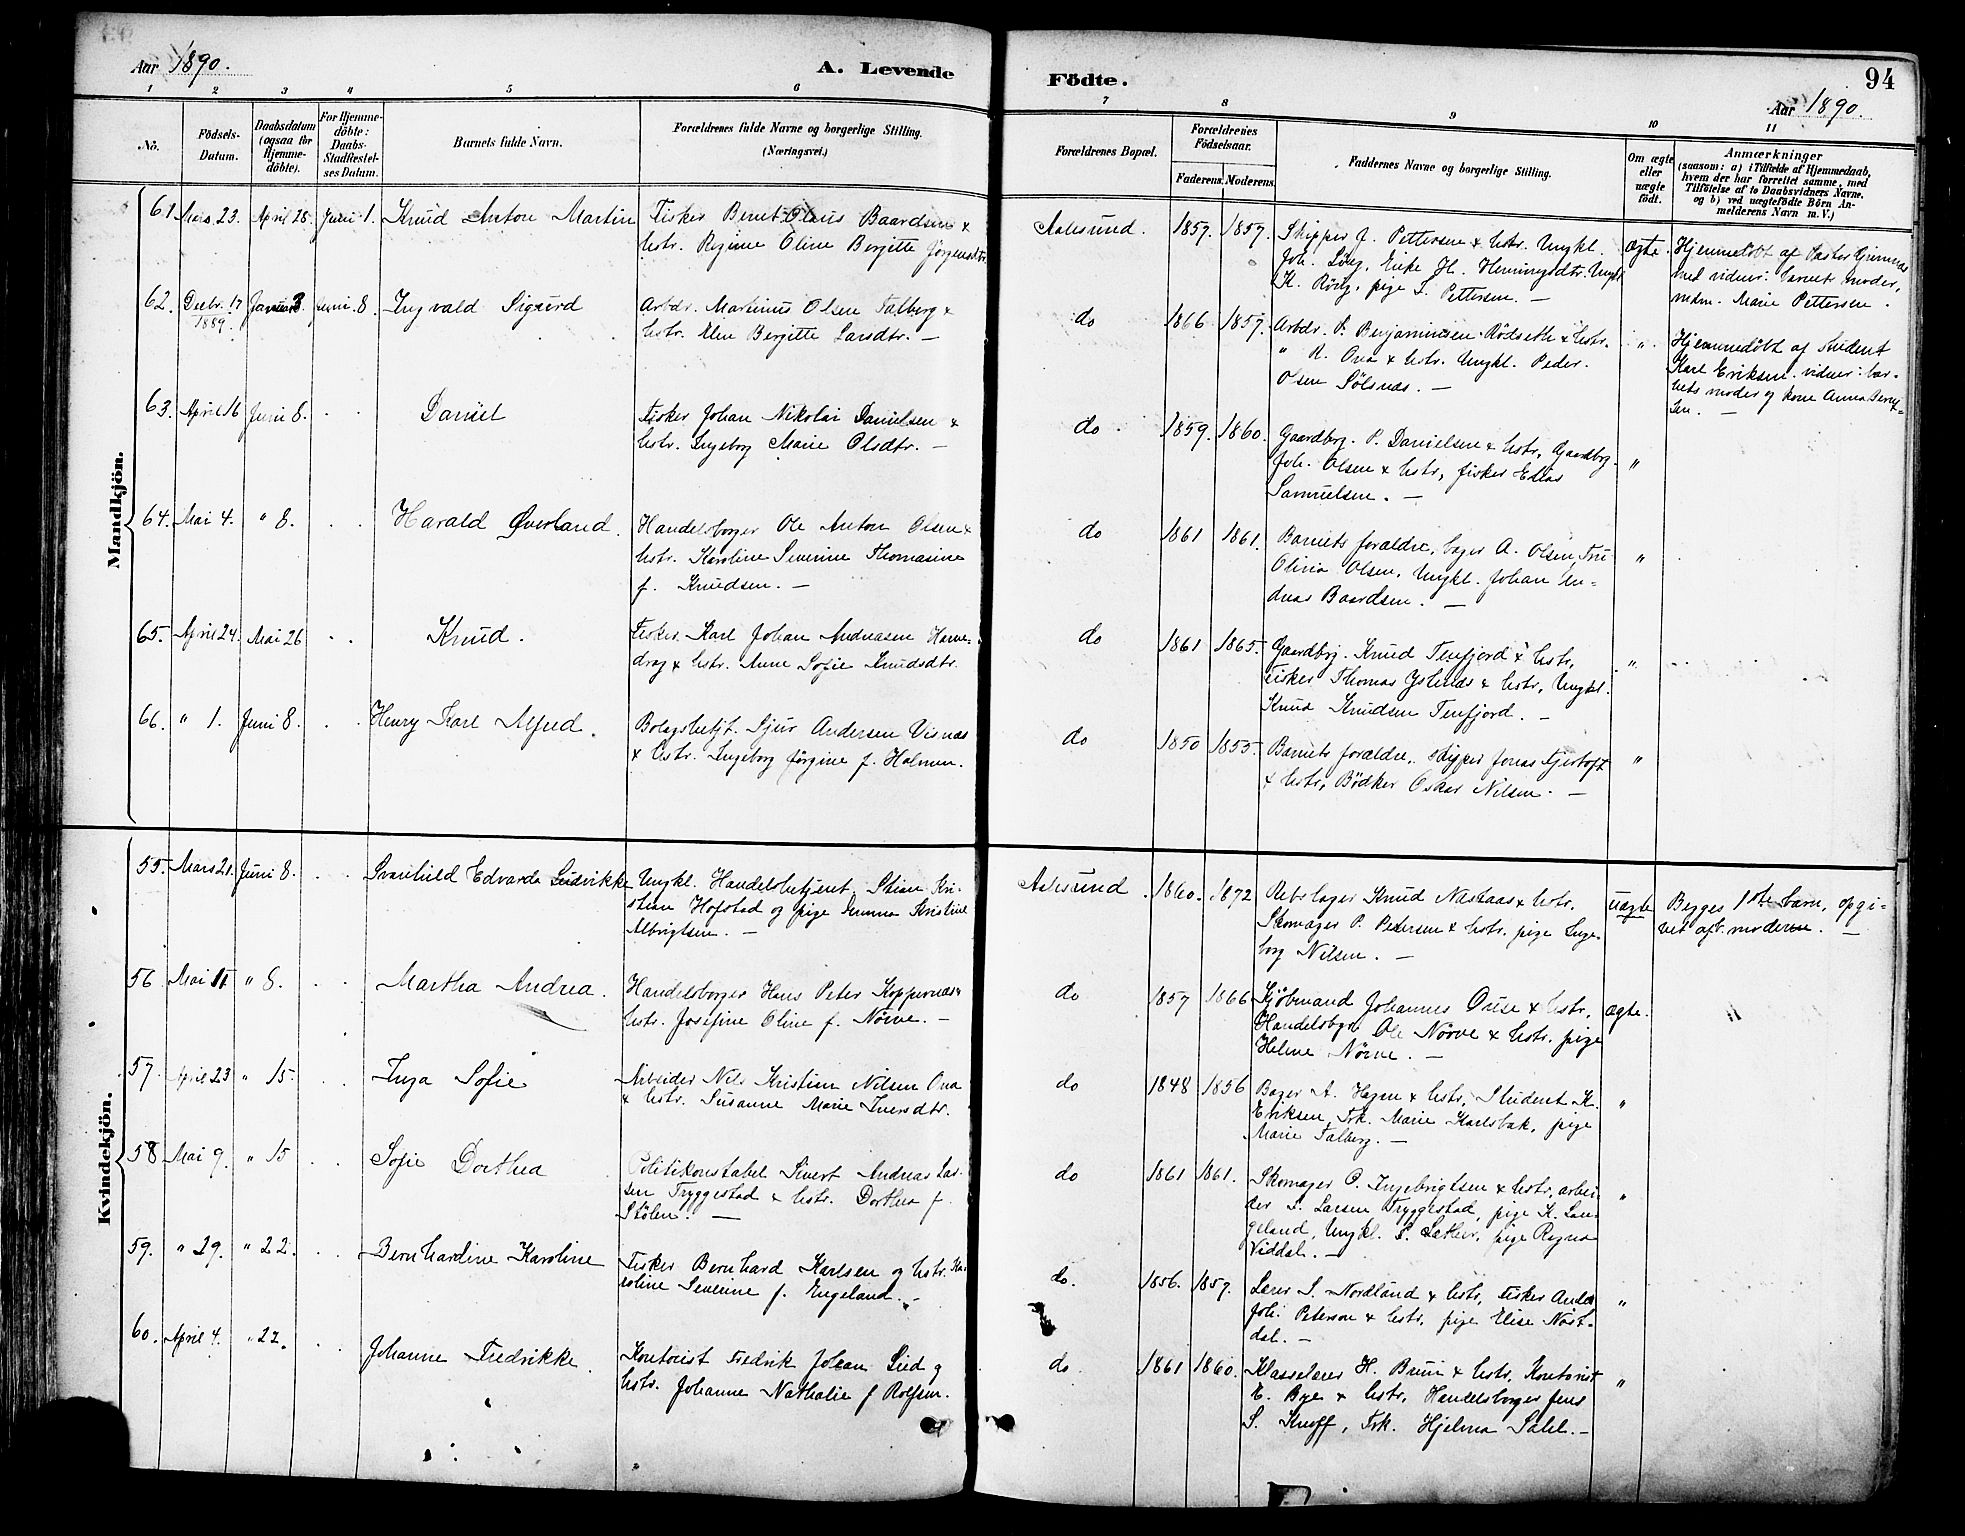 Aar 1890.
A. Levende
Födte.
94
Aar 1890.
1 2 3 4 5 6 7 8 9 10 11
No.
Födsels-Datum.
Daabsdatum (ogsaa for Hjemmedöbte).
For Hjemmedöbte: Daabs-Stadfæstelses Datum.
Barnets fulde Navn.
Forældrenes fulde Navne og borgerlige Stilling. (Næringsvei.)
Forældrenes Bopæl.
Forældrenes Födselsaar.
Faderens. Moderens.
Faddernes Navne og borgerlige Stilling.
Om ægte eller uægte födt.
Anmærkninger
(saasom: a) i Tilfælde af Hjemmedaab, hvem der har forrettet samme, med Tilföielse af to Daabsvidners Navne, og b) ved uægtefödte Börn Anmelderens Navn m. V.)
Mandkjön.
61. Mars 23. April 28. Juni 1. Knud Anton Martin
Fisker Bernt Olaus Baardsen &
hstr. Regine Oline Bergitte Jörgensdtr.
Aalesund. 1857. 1857.
Skipper J. Pettersen & hstr. Ungkl.
Joh. Ling, Enke H. Henningsdtr. Ungkl
K. Röng, pige S. Pettersen. —
Ægte.
Hjemmedöbt af Pastor Grimnæs
med vidner: barnets moder,
madm. Marie Pettersen.
62. Decbr. 17 1889. Januar 3. Juni 8. Ingvald Sigurd
Arbdr. Martinus Olsen Talberg &
hstr. Elen Bergitte Larsdtr. —
do 1866 1857.
Arbdr. P. Benjaminsen Rödseth & hstr.
" R. Ona & hstr. Ungkl. Peder
Olsen Sölsnæs. —
"
Hjemmedöbt af student
Karl Eriksen. vidner: bar-
nets moder og kone Anna Bernt-
sen. —
63. April 16 Juni 8. Daniel
Fisker Johan Nikolai Danielsen &
hstr. Ingeborg Marie Olsdtr. —
do 1859. 1860.
Gaardbrg. P. Danielsen & hstr, Gaardbrg.
Joh. Olsen & hstr, fisker Elias
Samuelsen. —
"
64. Mai 4. " 8. Harald Øverland.
Handelsborger Ole Anton Olsen &
hstr. Karoline Severine Thomasine
f. Knudsen. —
do 1861 1861.
Barnets forældre, bager A. Olsen, Fru
Olivia Olsen, Ungkl. Johan An-
dreas Baardsen. —
"
65. April 24. Mai 26 Knud.
Fisker Karl Johan Andreasen Harne-
drag & hstr. Anne Sofie Knudsdtr.
do 1861 1865.
Gaardbrg. Knud Tenfjord & hstr,
Fisker Thomas Ystenes & hstr, Ungkl.
Knud Knudsen Tenfjord. —
"
66. " 1. Juni 8. Henry Karl Alfred.
Bolagsbetjt. Sjur Andersen Visnæs
& hstr. Ingeborg Jörgine f. Holmen.
do 1850 1855.
Barnets forældre, skipper Jonas Fjørtoft
& hstr, Bödker Oskar Nilsen. —
"
Kvindekjön.
55. Mars 21. Juni 8. Svanhild Edvarda Ludvikke
Ungkl. Handelsbetjent Stian Kri-
stian Hofstad og pige Emma Kristine
Albrigtsen. —
Aalesund. 1860. 1872
Rebslager Knud Nastaas & hstr.
Skomager P. Petersen & hstr. pige Inge-
borg Nilsen. —
uægte
Begges 1ste barn, opgi-
vet af moderen. —
56 Mai 11 " 8. Martha Andrea.
Handelsborger Hans Peter Koppernæs &
hstr. Josefine Oline f. Nörve. —
do 1857 1866
Kjöbmand Johannes Duse & hstr,
Handelsbgr. Ole Nörve & hstr. pige
Helene Nörve. —
ægte.
57. April 23 " 15. Inga Sofie
Arbeider Nils Kristian Nilsen Ona
& hstr. Susanne Marie Iversdtr.
do 1848 1856
Bager A. Hagen & hstr, Student K.
Eriksen, Frk. Marie Karlsbak, pige
Marie Talberg. —
"
58 Mai 9. " 15 Sofie Dorthea
Politikonstabel Sivert Andreas Lar-
sen Tryggestad & hstr. Dorthea f.
Stölen. —
do 1861 1861.
Skomager O. Ingebrigtsen & hstr, arbei-
der S. Larsen Tryggestad, pige K. Lan-
geland, Ungkl. S. Sæther, pige Regna
Viddal. —
"
59. " 29. " 22. Bernhardine Karoline
Fisker Bernhard Karlsen og hstr. Ka-
roline Severine f. Engeland. —
do. 1856. 1857.
Lærer S. Nordlund & hstr, fisker Andr.
Joh. Peterson & hstr, pige Elise Nöst-
dal. —
"
60. April 4. " 22. Johanne Fredrikke.
Kontorist Fredrik Johan Lied og
hstr. Johanne Nathalie f Rolfsen.
do 1861 1860.
Klasselærer H. Bruun & hstr, Kontorist
E. Bye & hstr, Handelsborger Jens
S. Knoff, Frk. Hjelma Dahl. —
"